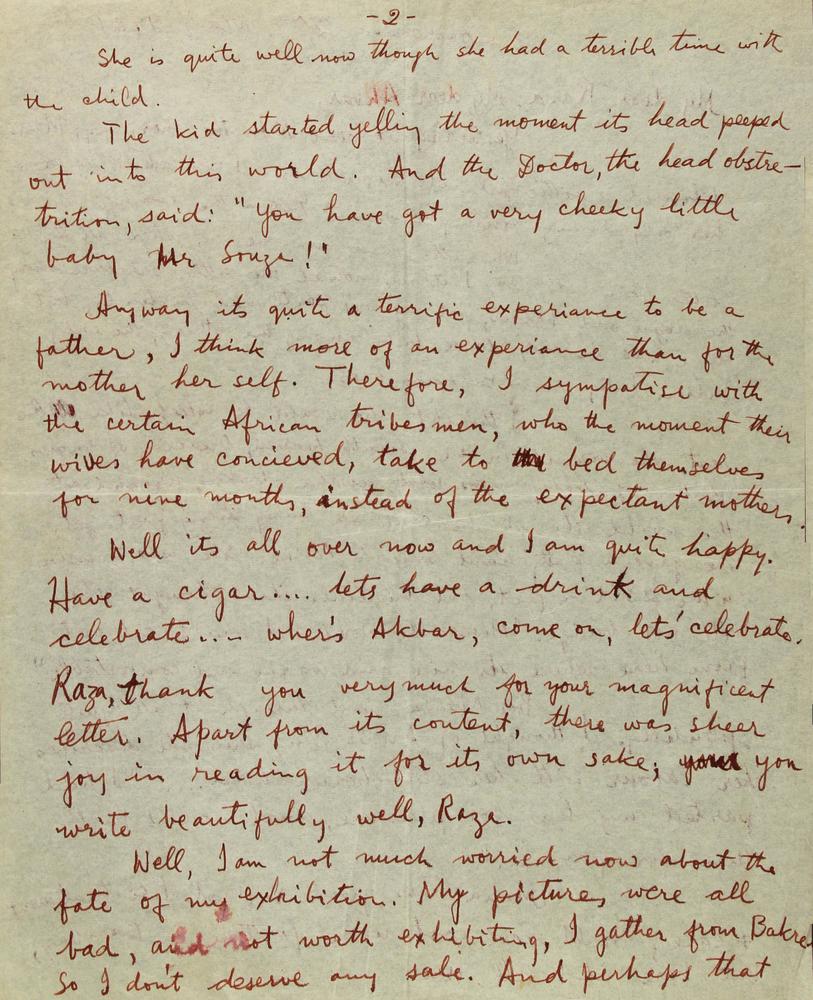 -2-
She is quite well now though she had a terrible time with
the child.
The kid started yelling the moment its head peeped
out into this world. And the Doctor, the head obstre-
trition, said: "You have got a very cheeky little
baby Mr Souza!"
Anyway its quite a terrific experiance to be a
father, I think more of an experiance than for the
mother her self. Therefore, I sympatise with
the certain African tribesmen, who the moment their
wives have concieved, take to bed themselves
for nine months, instead of the expectant mothers.
Well its all over now and I am quite happy.
Have a cigar.... lets have a drink and
celebrate.... wher's Akbar, come on, lets' celebrate.
Raza, thank you very much for your magnificent
letter. Apart from its content, there was sheer
joy in reading it for its own sake; you
write beautifully well, Raza.
Well, I am not much worried now about the
fate of my exhibition. My pictures were all
bad, and not worth exhibiting, I gather from Bakre.
So I don't deserve any sale. And perhaps that